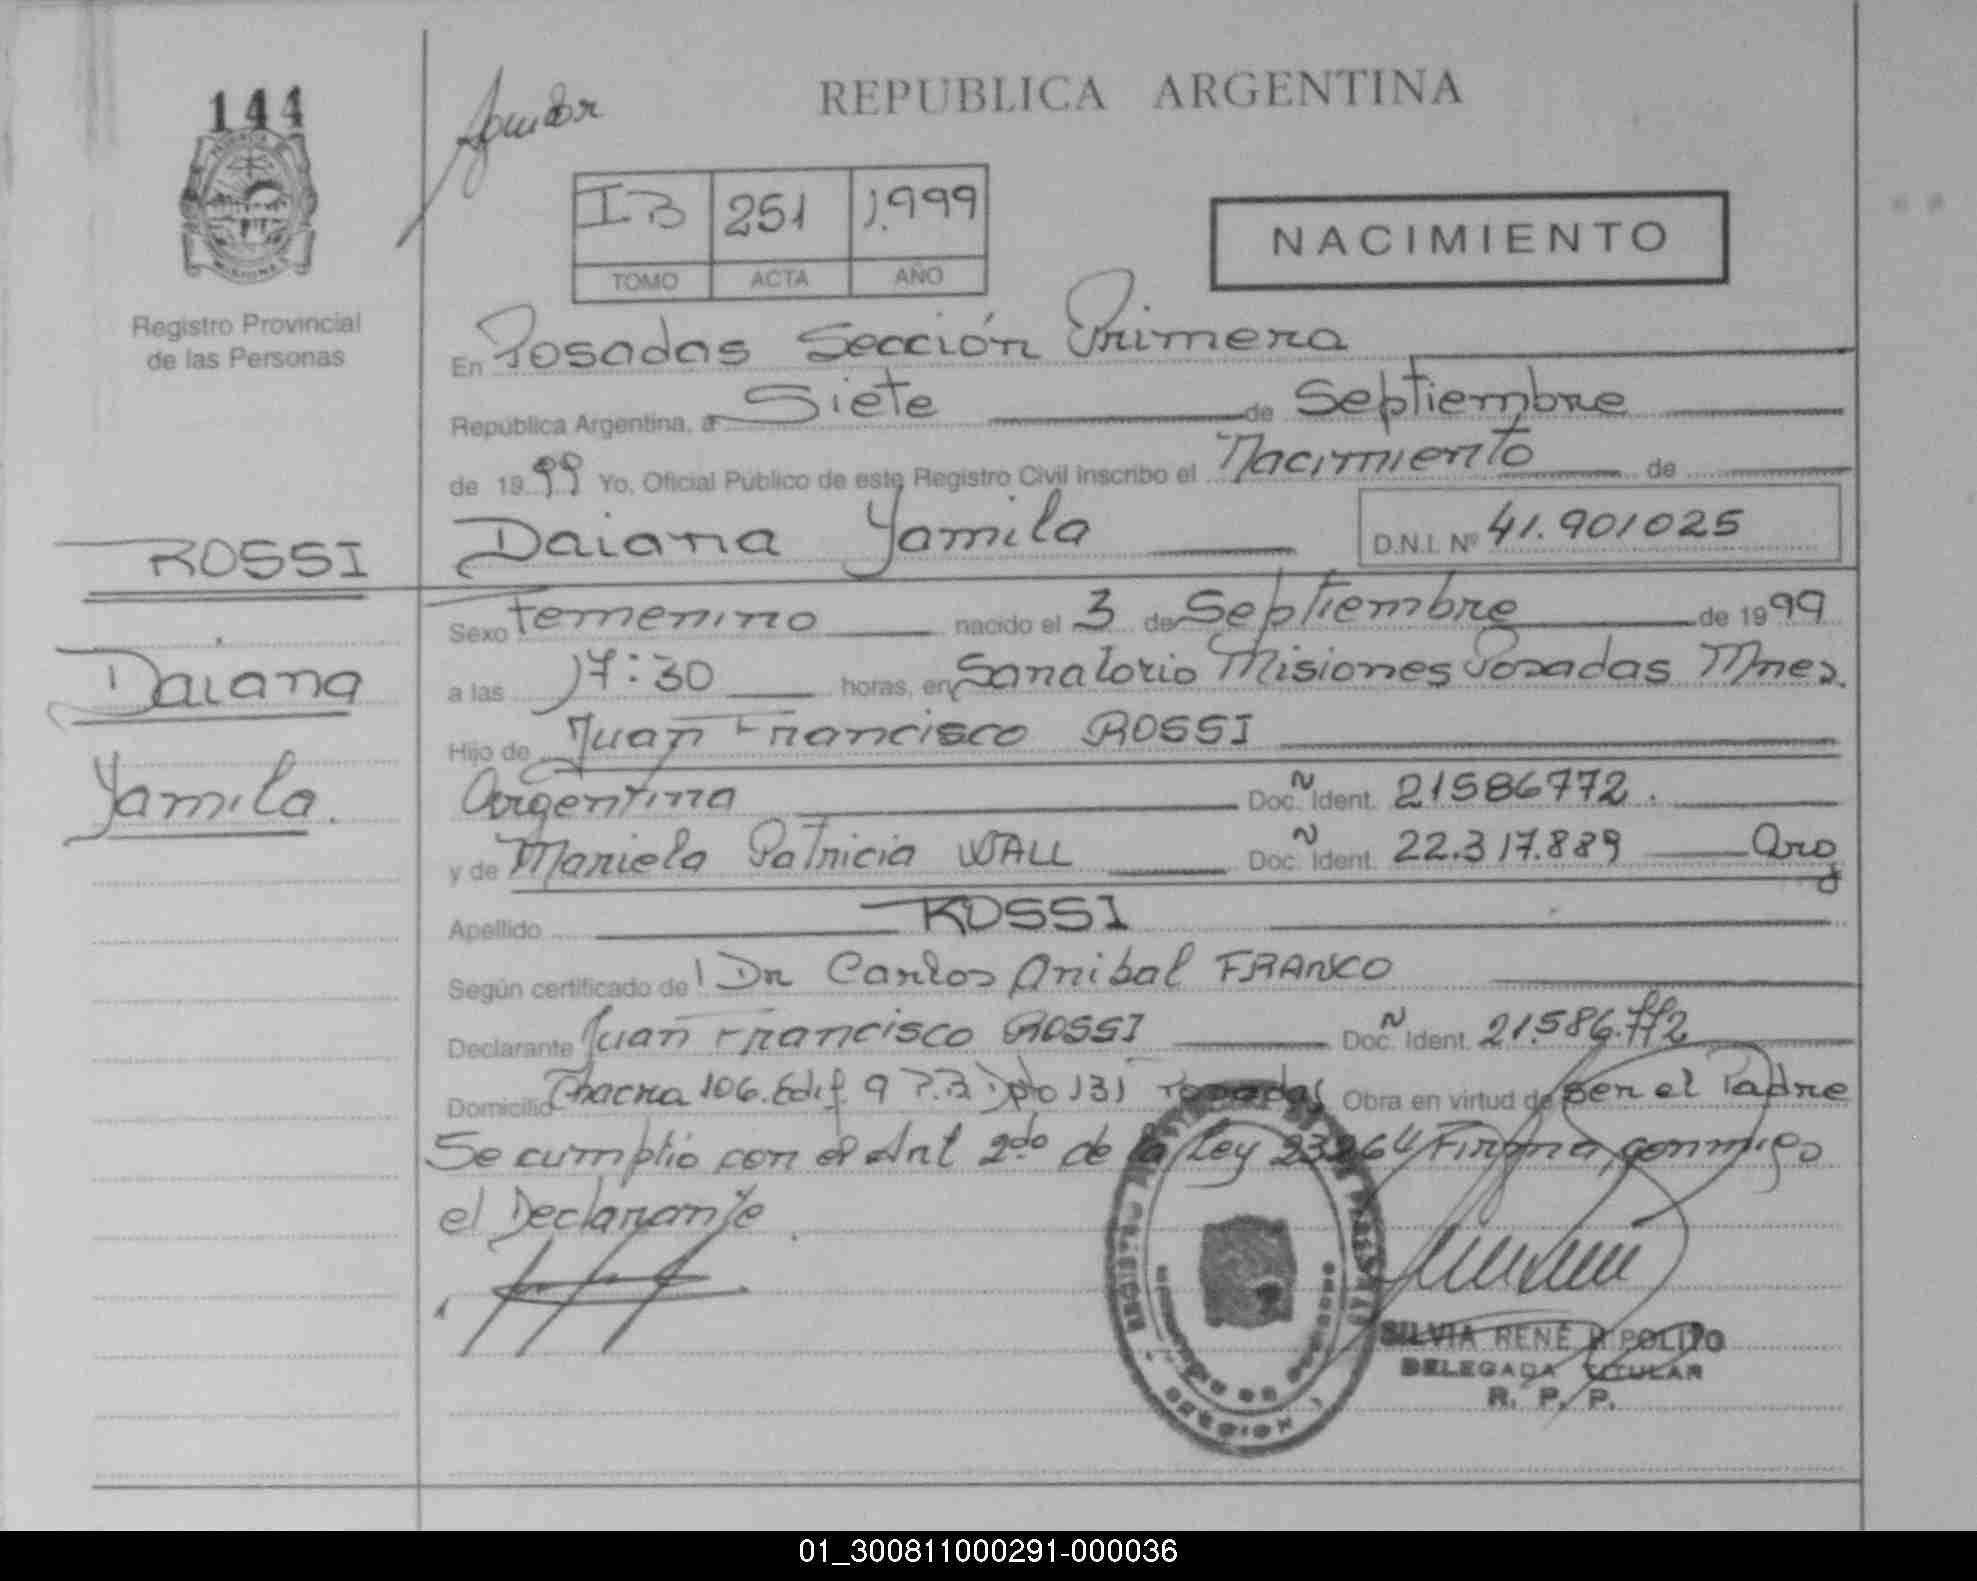 144
REPUBLICA ARGENTINA
IB 251 1.999
TOMO ACTA AÑO
NACIMIENTO
Registro Provincial
de las Personas
En Posadas Sección Primera
República Argentina, a Siete de Septiembre
de 1999 Yo, Oficial Público de este Registro Civil inscribo el Nacimiento de
Daiana Yamila D.N.I. Nº 41.901025
ROSSI
Daiana
Yamila.
Sexo Femenino nacido el 3 de Septiembre de 1999
a las 17:30 horas, en Sanatorio Misiones Posadas Mnes.
Hijo de Juan Francisco ROSSI
Argentina Doc. Ident. 21586772.
y de Mariela Patricia WALL Doc. Ident. 22.317.839 Arg
Apellido ROSSI
Según certificado de Dr Carlos Anibal FRANCO
Declarante Juan Francisco ROSSI Doc. Ident. 21.586.772
Domicilio Chacra 106. Edif 9 Dpto 131 Posadas Obra en virtud de ser el Padre
Se cumplio con el Art 2do de la Ley 23264 Firma conmigo
el Declarante.
SILVIA RENE HIPOLITO
DELEGADA TITULAR
R. P. P.
01_300811000291-000036